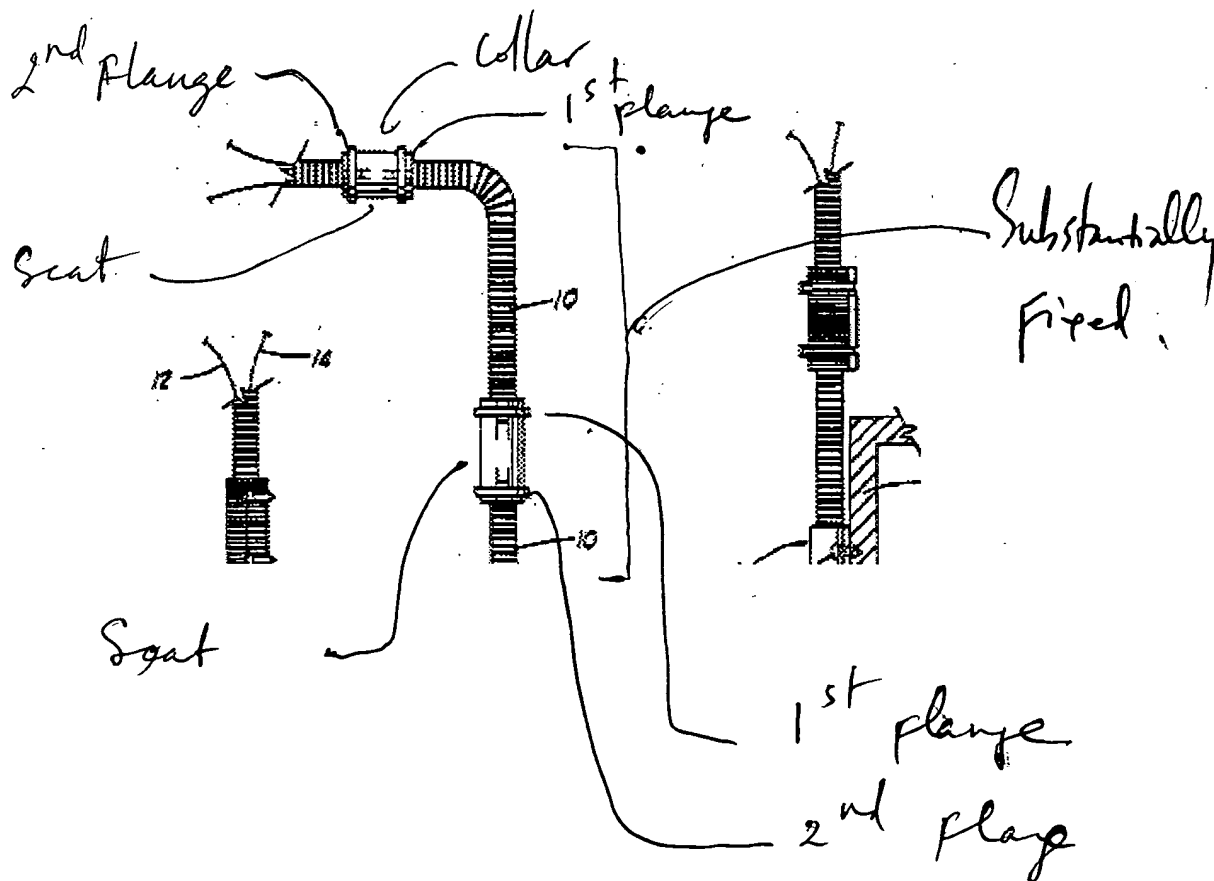 2nd Flange
Collar
1st flange
Seat
Substantially
Fixed.
10
12
14
10
Seat
1st flange
2nd flange